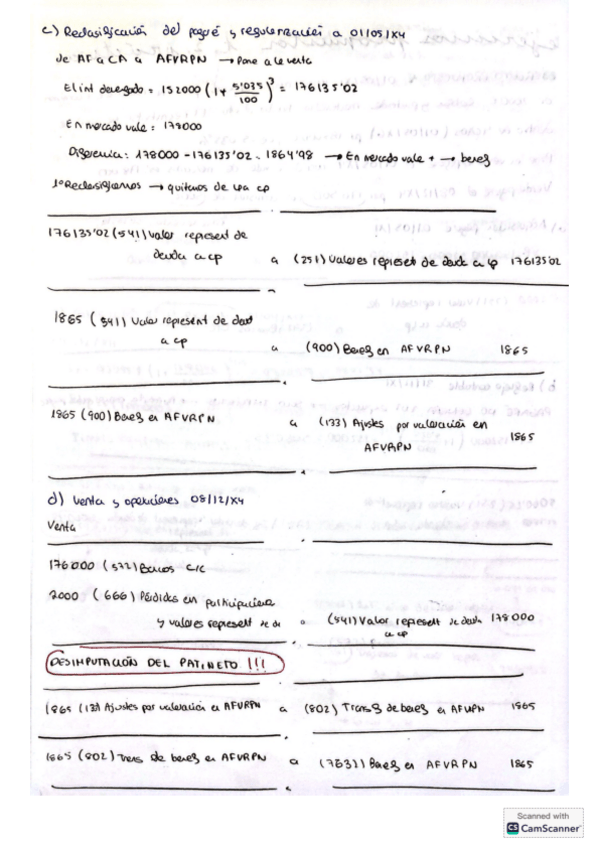 c) Reclasificación del pagaré y regularización a 01/05/X4
de AF a CA a AFVRPN → Pone a la venta
El int devengado = 152000 (1+ 5'035/100)³ = 176135'02
En mercado vale = 178000
Diferencia: 178000 - 176135'02 = 1864'98 → En mercado vale + → benef
1º Reclasificamos → quitamos de
176135'02 (541) Valor represent de
deuda a cp
a (251) Valores represent de deuda a lp 176135'02
1865 (541) Valor represent de deud
a cp
a (900) Benef en AFVRPN 1865
1865 (900) Benef en AFVRPN
a (133) Ajustes por valoración en
AFVRPN
1865
d) Venta y operaciones 08/12/X4
Venta
176000 (572) Bancos c/c
2000 (666) Pérdidas en participaciones
y valores represent de de
a (541) Valor represent de deuda 178000
a cp
DESIMPUTACIÓN DEL PAT. NETO !!!
1865 (133) Ajustes por valoración en AFVRPN a (802) Transf de benef en AFVRPN 1865
1865 (802) Trans de benef en AFVRPN a (7632) Benef en AFVRPN 1865
Scanned with
CS CamScanner